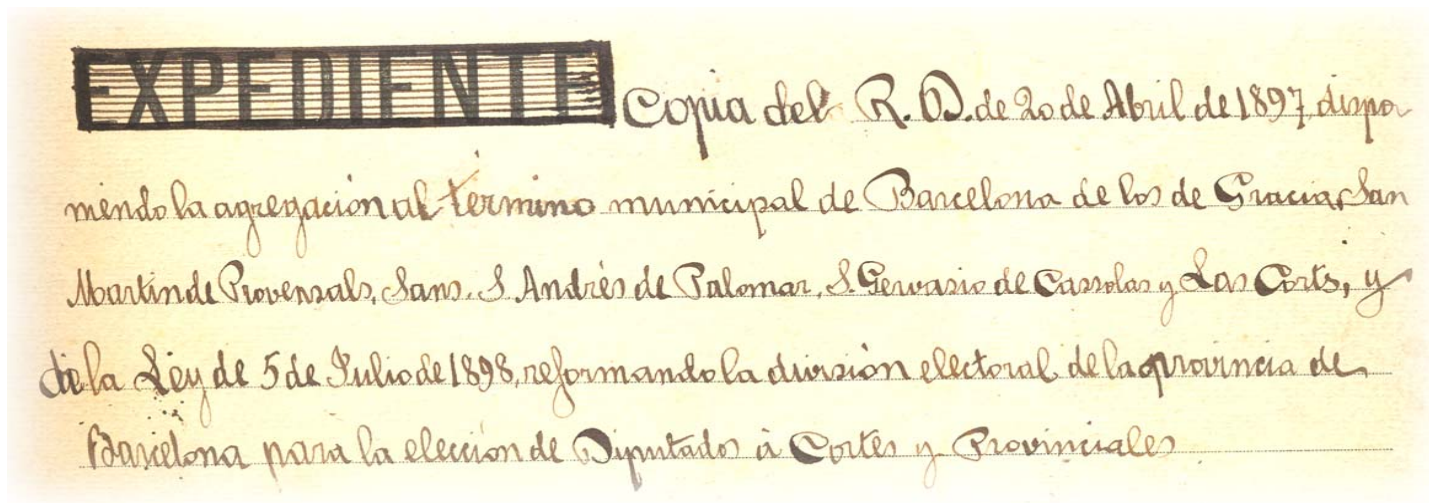 EXPEDIENTE Copia del R. D. de 20 de Abril de 1897, dispo
niendo la agregación al término municipal de Barcelona de los de Gracia, San
Martin de Provensals, Sans, S. Andrés de Palomar, S. Gervasio de Cassolas y Las Corts, y
de la Ley de 5 de Julio de 1898, reformando la división electoral de la provincia de
Barcelona para la elección de Diputados à Cortes y Provinciales